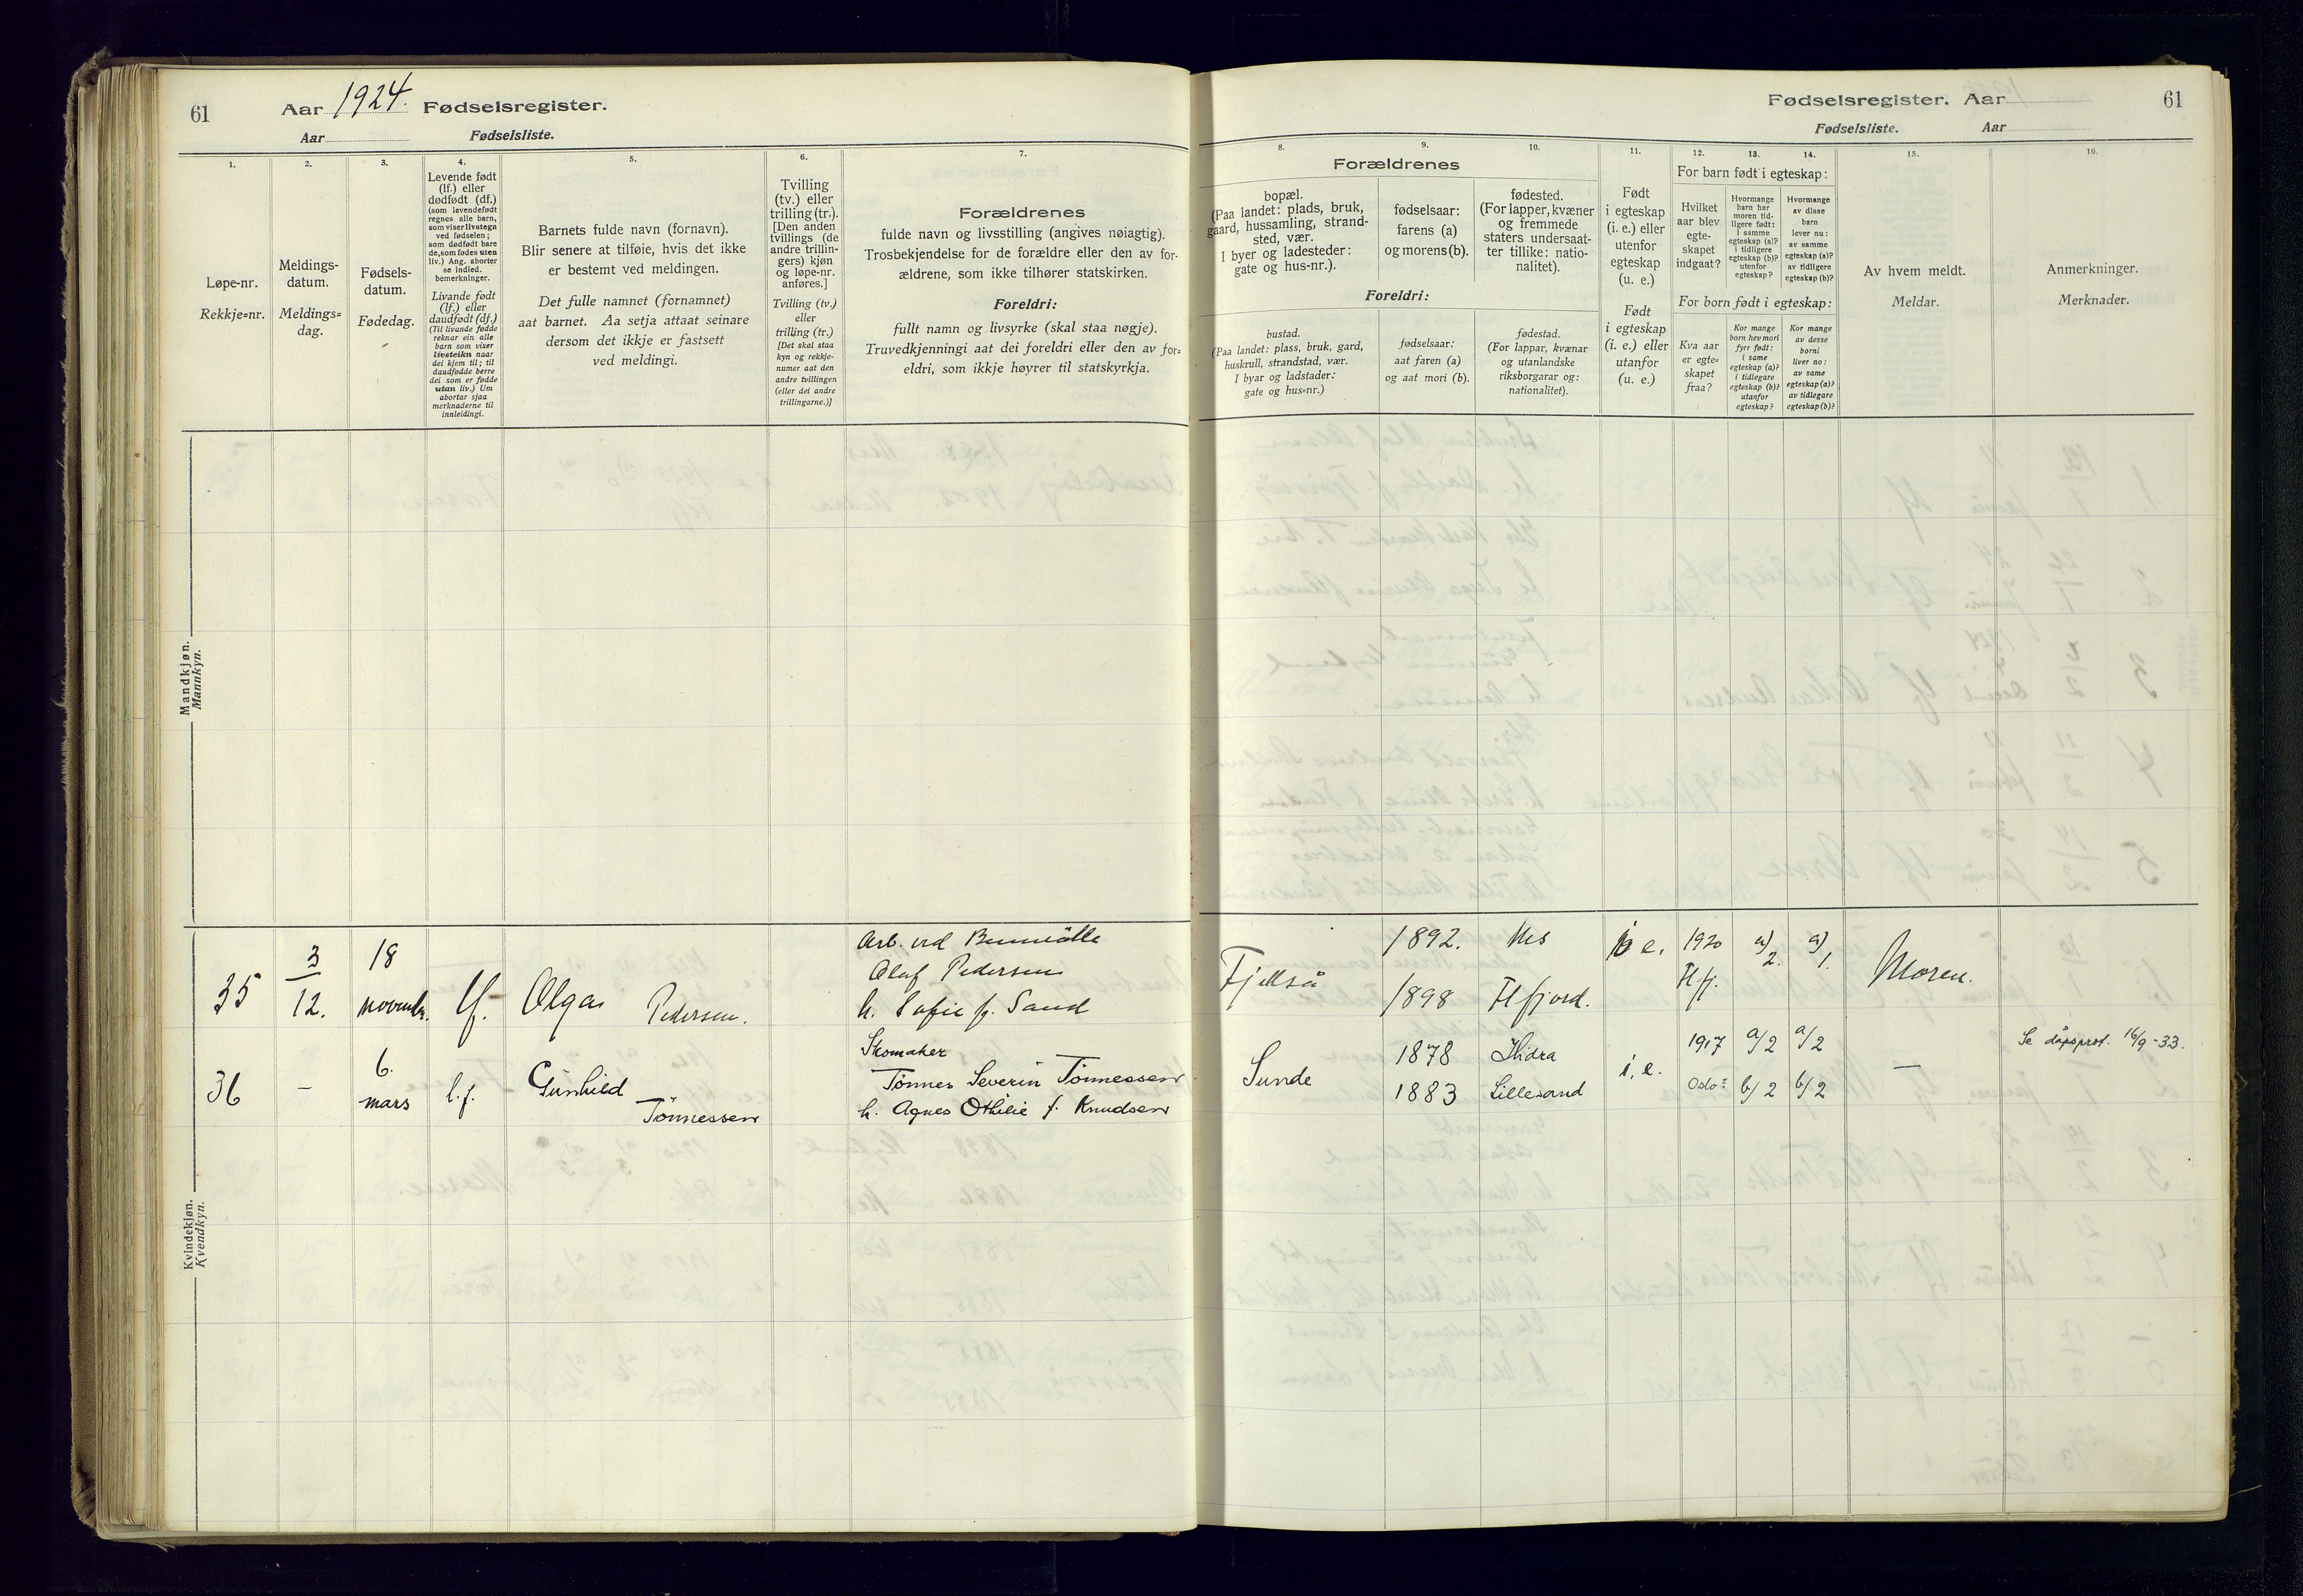 61 Aar 1924. Fødselsregister.
Aar Fødselsliste.
1.
2.
3.
4.
5.
6.
7.
Løpe-nr.
Rekkje=nr.
Meldings-
datum.
Meldings=
dag.
Fødsels-
datum.
Fødedag.
Levende født
(lf.) eller
dødfødt (df.)
(som levendefødt
regnes alle barn,
som viser livstegn
ved fødselen;
som dødfødt bare
de, som fødes uten
liv.) Ang. aborter
se indled.
bemerkninger.
Livande født
(lf.) eller
daudfødt (df.)
(Til livande fødde
reknar ein alle
barn som viser
livsteikn naar
dei kjem til; til
daudfødde berre
dei som er fødde
utan liv.) Um
abortar sjaa
merknaderne til
innleidingi.
Barnets fulde navn (fornavn).
Blir senere at tilføie, hvis det ikke
er bestemt ved meldingen.
Det fulle namnet (fornamnet)
aat barnet. Aa setja attaat seinare
dersom det ikkje er fastsett
ved meldingi.
Tvilling
(tv.) eller
trilling (tr.).
[Den anden
tvillings (de
andre trillin-
gers) kjøn
og løpe-nr.
anføres.]
Tvilling (tv.)
eller
trilling (tr.)
[Det skal staa
kyn og rekkje-
numer aat den
andre tvillingen
(eller dei andre
trillingarne.)]
Forældrenes
fulde navn og livsstilling (angives nøiagtig).
Trosbekjendelse for de forældre eller den av for-
ældrene, som ikke tilhører statskirken.
Foreldri:
fullt namn og livsyrke (skal staa nøgje).
Truvedkjenningi aat dei foreldri eller den av for=
eldri, som ikkje høyrer til statskyrkja.
Mandkjøn.
Mannkyn.
35
3
12.
18
novembr.
lf.
Olga
Pedersen.
Arb. ved
Olaf Pedersen
h. Sofie f. Sand
36
–
6.
mars
l.f.
Gunhild
Tønnessen
Skomaker
Tønnes Severin Tønnessen
h. Agnes Othilie f. Knudsen
Kvindekjøn.
Kvendkyn.
Fødselsregister. Aar 61
Fødselsliste. Aar
8.
9.
10.
11.
12.
13.
14.
15.
16.
Forældrenes
bopæl.
(Paa landet: plads, bruk,
gaard, hussamling, strand-
sted, vær.
I byer og ladesteder:
gate og hus-nr.).
fødselsaar:
farens (a)
og morens (b).
fødested.
(For lapper, kvæner
og fremmede
staters undersaat-
ter tillike: natio-
nalitet).
Foreldri:
bustad.
(Paa landet: plass, bruk, gard,
huskrull, strandstad, vær.
I byar og ladstader:
gate og hus=nr.)
fødselsaar:
aat faren (a)
og aat mori (b).
fødestad.
(For lappar, kvænar
og utanlandske
riksborgarar og:
nationalitet).
Født
i egteskap
(i. e.) eller
utenfor
egteskap
(u. e.)
Født
i egteskap
(i. e.) eller
utanfor
(u. e.)
For barn født i egteskap:
Hvilket
aar blev
egte-
skapet
indgaat?
Hvormange
barn har
moren tid-
ligere født:
i samme
egteskap (a)?
i tidligere
egteskap (b)?
utenfor
egteskap?
Hvormange
av disse
barn
lever nu:
av samme
egteskap (a)?
av tidligere
egteskap (b)?
For born født i egteskap:
Kva aar
er egte=
skapet
fraa?
Kor mange
born hev mori
fyrr født:
i same
egteskap (a)?
i tidlegare
egteskap (b)?
utanfor
egteskap?
Kor mange
av desse
borni
liver no:
av same
egteskap (a)?
av tidlegare
egteskap (b)?
Av hvem meldt.
Meldar.
Anmerkninger.
Merknader.
Fjellså
1892.
1898
Hes
Flfjord.
i e.
1920
Flfj.
a)
2.
a)
1.
Moren.
Sunde
1878
1883
Hidra
Lillesand
i. e.
1917
Oslo?
a/2
b/2
a/2
b/2
—
Se dåpsprot. 16/9-33.